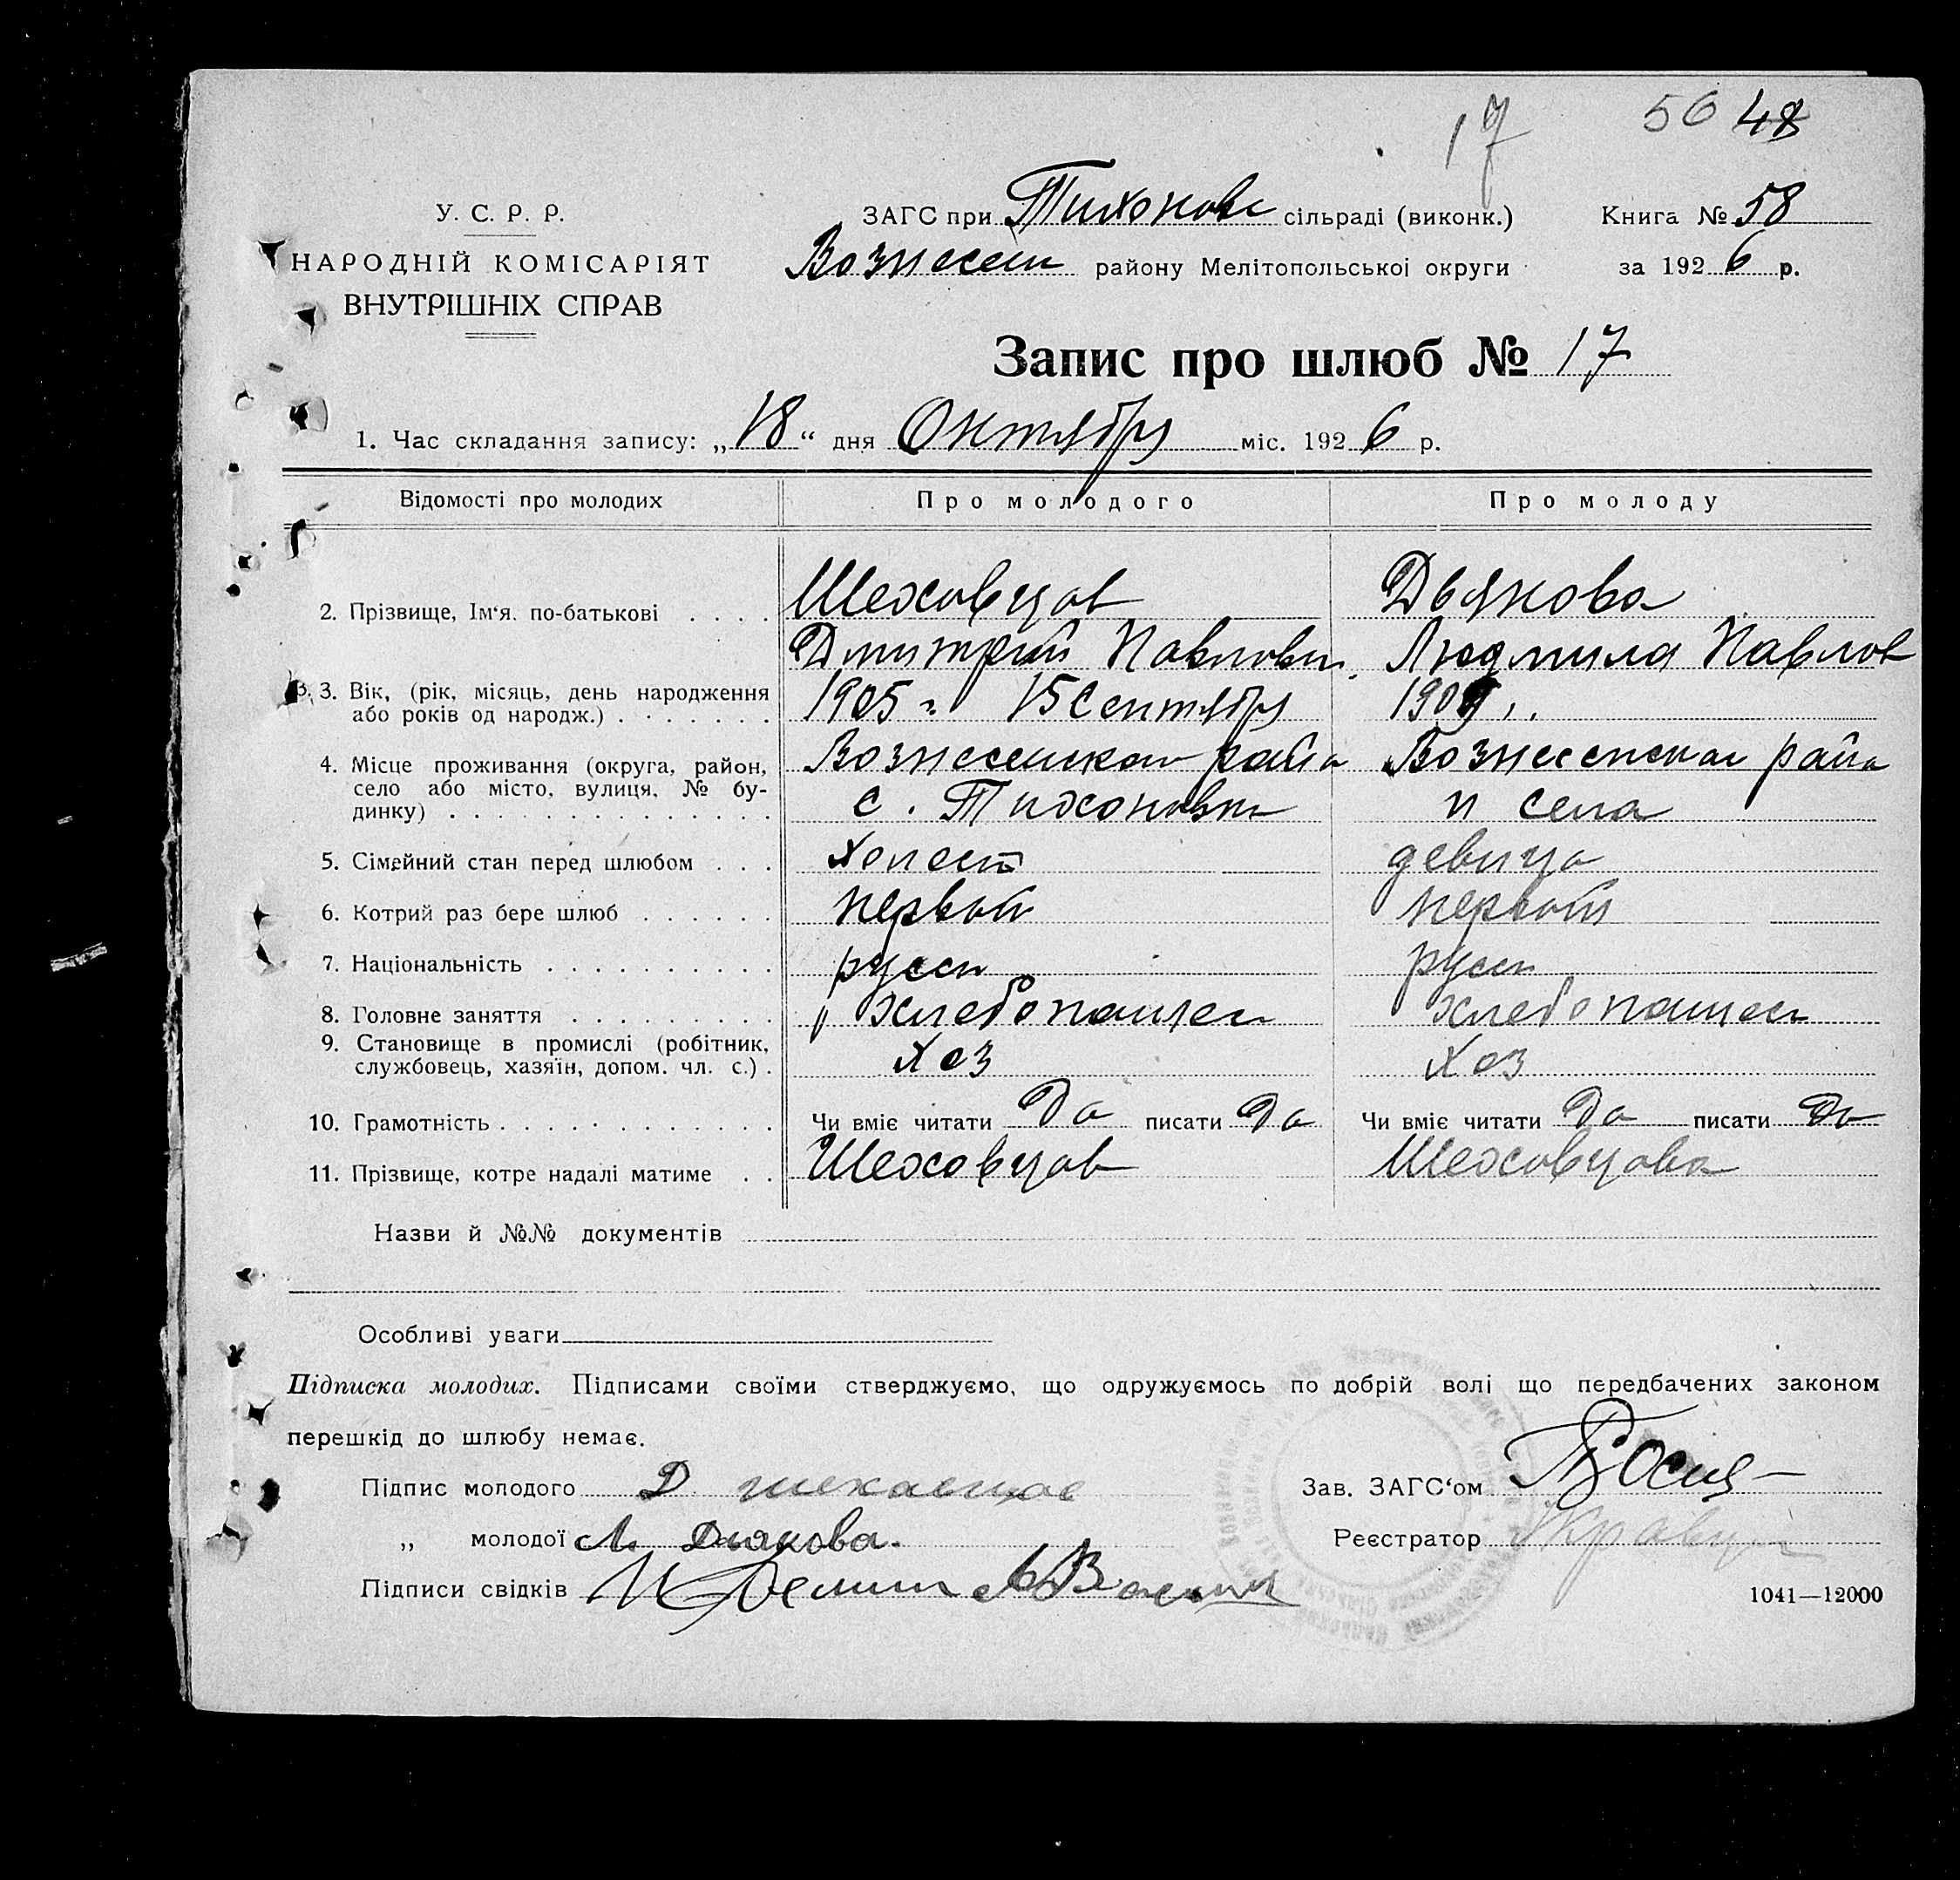 17 56 48
У. С. Р. Р.
НАРОДНІЙ КОМІСАРІЯТ
ВНУТРІШНІХ СПРАВ
ЗАГС при Тихонов сільраді (виконк.) Книга № 58
Вознесен району Мелітопольської округи за 1926 р.
Запис про шлюб № 17
1. Час складання запису: „18“ дня Октября міс. 1926 р.
Відомості про молодих Про молодого Про молоду
2. Прізвище, Ім'я. по-батькові . . . . Шеховцов Дьякова
Дмитрий Павлович Людмила Павлов
3. Вік, (рік, місяць, день народження 1905 г. 15 Сентября
або років од народж.) . . . . . . .
4. Місце проживання (округа, район, Вознесенского района Вознесенского района
село або місто, вулиця, № бу- с. Тихоновки и села
динку) . . . . . . . . . . . . . .
5. Сімейний стан перед шлюбом . . . Холост девица
6. Котрий раз бере шлюб . . . . . . первый первый
7. Національність . . . . . . . . . . русск русск
8. Головне заняття . . . . . . . . . хлебопашец хлебопашец
9. Становище в промислі (робітник, Хоз Хоз
службовець, хазяїн, допом. чл. с.) .
10. Грамотність . . . . . . . . . . . . Чи вміє читати Да писати Да Чи вміє читати Да писати Да
11. Прізвище, котре надалі матиме . . Шеховцов Шеховцова
Назви й №№ документів
Особливі уваги
Підписка молодих. Підписами своїми стверджуємо, що одружуємось по добрій волі що передбачених законом
перешкід до шлюбу немає.
Підпис молодого Д шеховцов Зав. ЗАГС'ом
„ молодої Л. Дьякова. Реєстратор
Підписи свідків
1041—12000